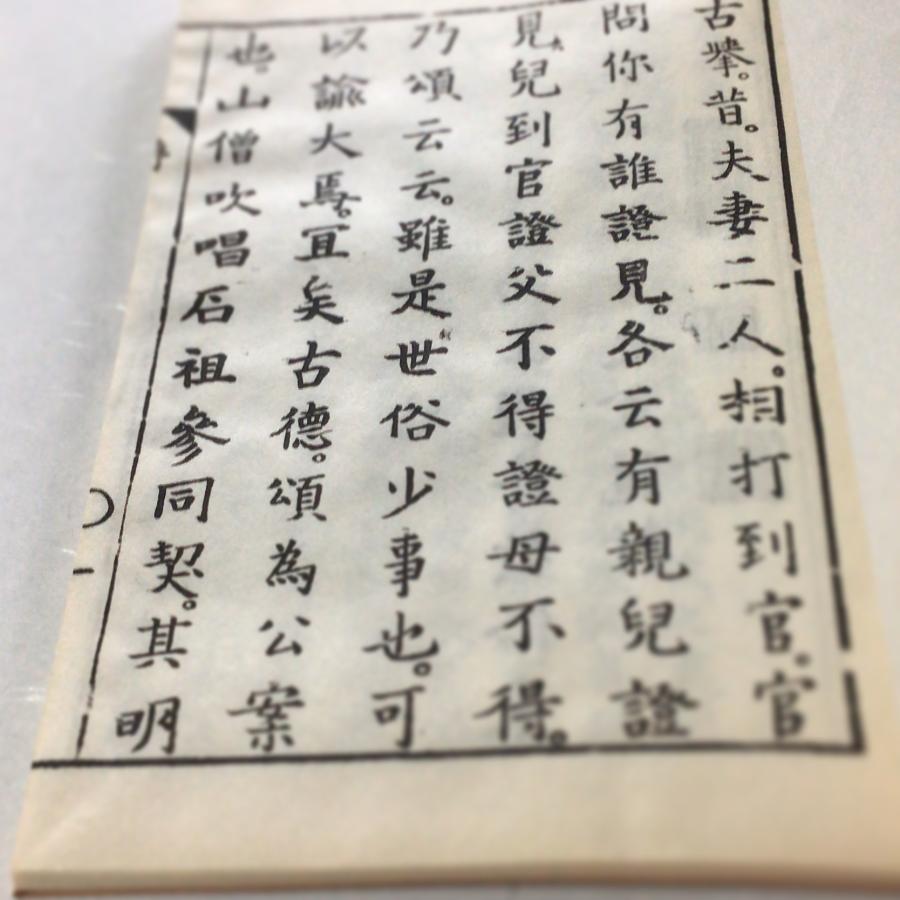 古犖。昔。夫妻二人。相打到官。官
問你有誰證見。各云有親兒證
見。兒到官證父不得證母不得。
乃頌云云。雖是世俗少事也。可
以諭大焉。冝矣古德。頌為公案
也。山僧吹唱石祖參同契。其明